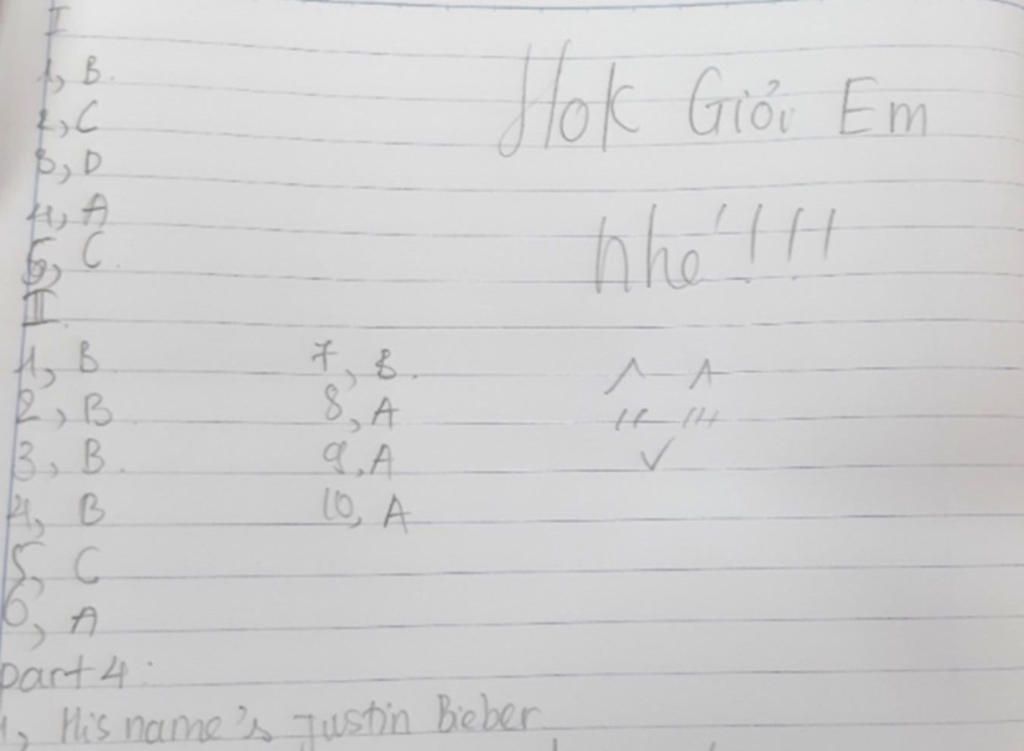 I
1, B.
2, C
3, D
4, A
5, C.
Hok Giỏi Em
nhé!!!
II
1, B
2, B
3, B.
4, B
5, C
6, A
7, B.
8, A
9, A
10, A
part 4:
1, His name's Justin Bieber